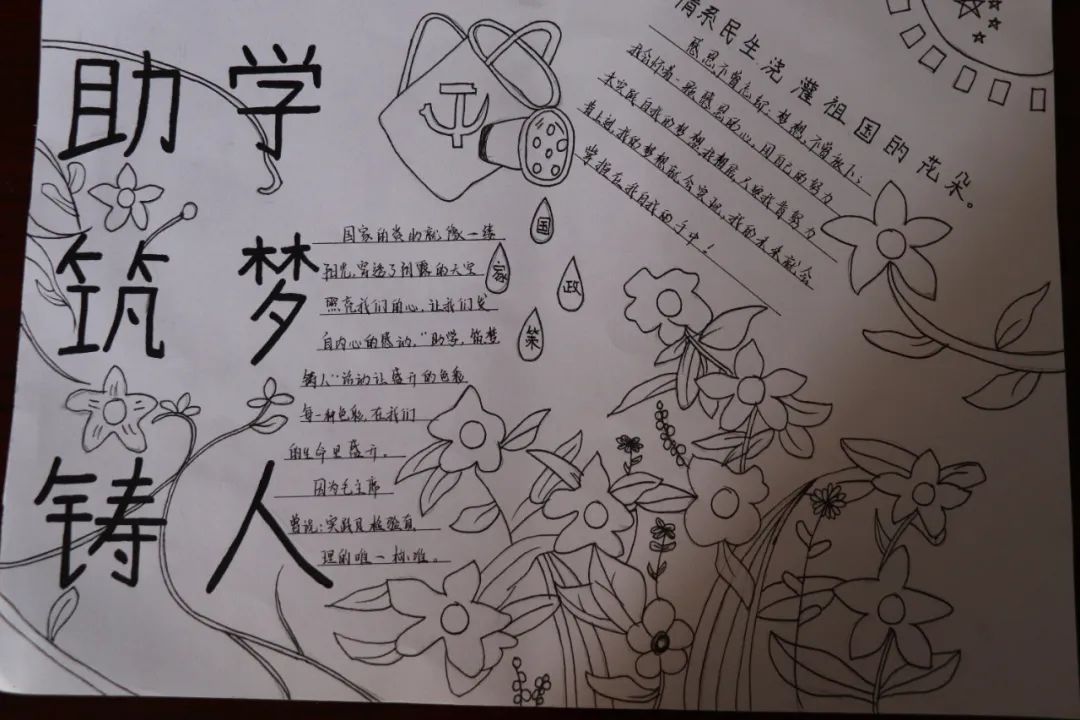 助学
筑梦
铸人
国
家
政
策
国家的资助就像一缕
阳光,穿透了阴霾的天空
照亮我们的心,让我们发
自内心的感讷,“助学,筑梦
铸人”活动让盛开的色彩
每一种色彩,在我们
的生命里盛开。
因为毛主席
曾说:实践是检验真
理的唯一标准。
情系民生.浇灌祖国的花朵。
感恩不曾忘记,梦想不曾放下;
我会怀着一颗感恩的心,用自己的努力
来实践自我的梦想,我相信,只要我肯努力
肯上进,我的梦想就会实现,我的未来就会
掌握在我自我的手中!